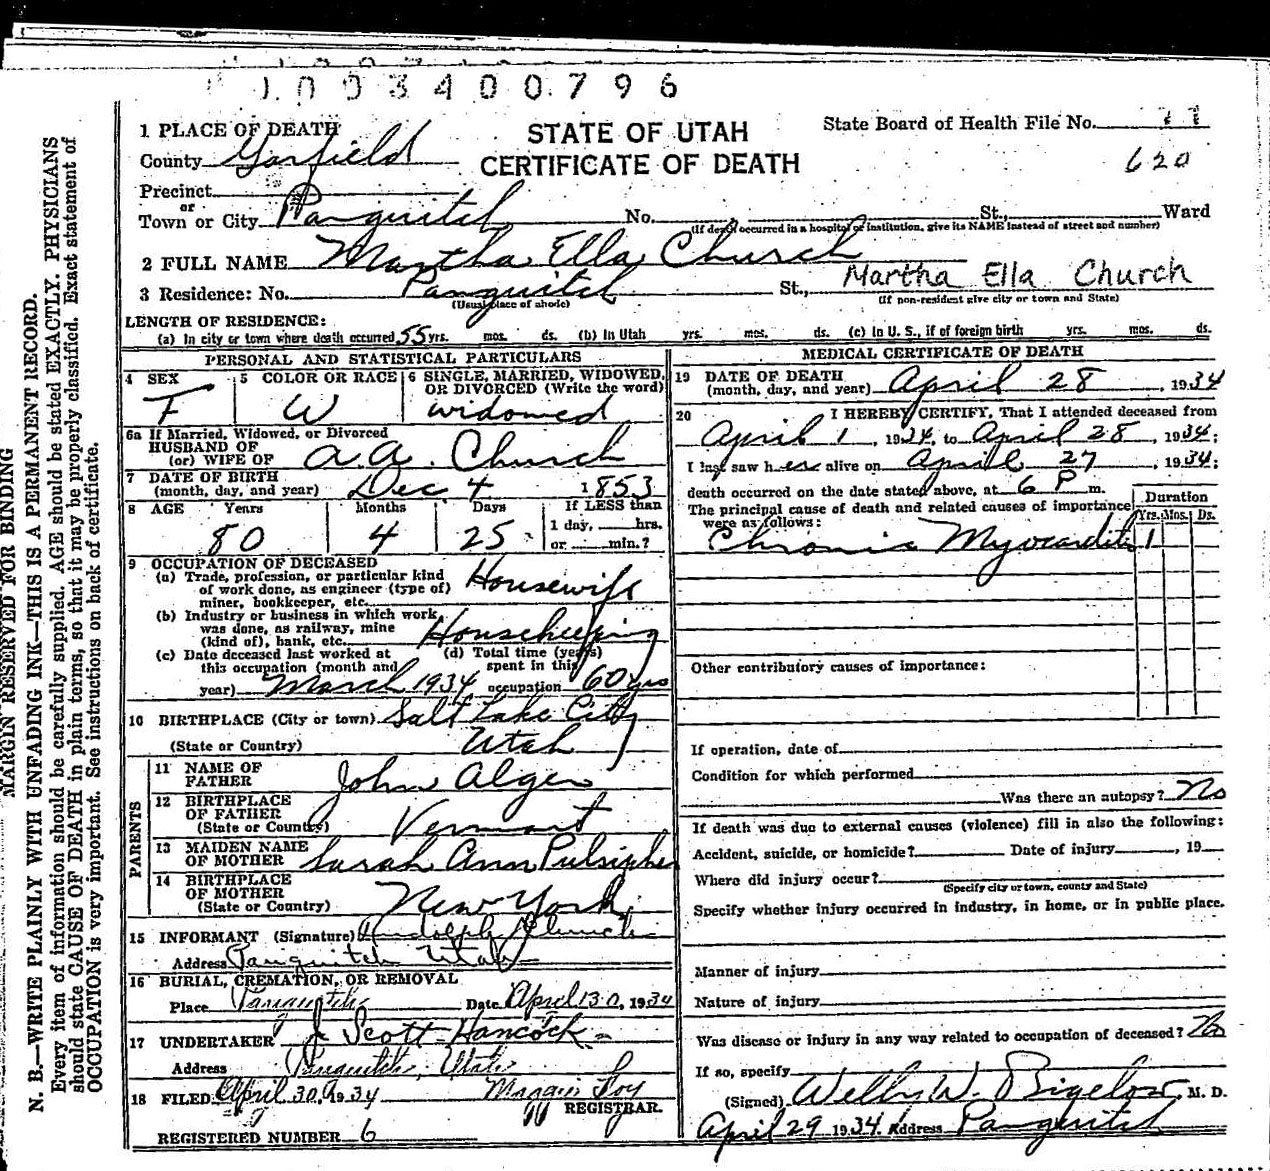 1003400796
STATE OF UTAH
CERTIFICATE OF DEATH
State Board of Health File No.
620
1 PLACE OF DEATH
County Garfield
Precinct
or
Town or City Panguitch No. St., Ward
(If death occurred in a hospital or institution, give its NAME instead of street and number)
2 FULL NAME Martha Ella Church
3 Residence: No. Panguitch St., Martha Ella Church
(Usual place of abode) (If non-resident give city or town and State)
LENGTH OF RESIDENCE:
(a) In city or town where death occurred 55 yrs. mos. ds. (b) In Utah yrs. mos. ds. (c) In U. S., if of foreign birth yrs. mos. ds.
PERSONAL AND STATISTICAL PARTICULARS
4 SEX
F
5 COLOR OR RACE
W
6 SINGLE, MARRIED, WIDOWED,
OR DIVORCED (Write the word)
widowed
6a If Married, Widowed, or Divorced
HUSBAND OF
(or) WIFE OF A. A. Church
7 DATE OF BIRTH
(month, day, and year) Dec 4 1853
8 AGE Years Months Days If LESS than
1 day, hrs.
80 4 25 or min.?
9 OCCUPATION OF DECEASED
(a) Trade, profession, or particular kind
of work done, as engineer (type of)
miner, bookkeeper, etc. Housewife
(b) Industry or business in which work
was done, as railway, mine
(kind of), bank, etc. Housekeeping
(c) Date deceased last worked at
this occupation (month and
year) March 1934
(d) Total time (years)
spent in this
occupation 60 yrs
10 BIRTHPLACE (City or town) Salt Lake City
(State or Country) Utah
PARENTS
11 NAME OF
FATHER John Alger
12 BIRTHPLACE
OF FATHER
(State or Country) Vermont
13 MAIDEN NAME
OF MOTHER Sarah Ann Pulsipher
14 BIRTHPLACE
OF MOTHER
(State or Country) New York
15 INFORMANT (Signature) Randolph Church
Address Panguitch Utah
16 BURIAL, CREMATION, OR REMOVAL
Place Panguitch Date April 30, 1934
17 UNDERTAKER J Scott Hancock
Address Panguitch, Utah
18 FILED April 30, 1934 Foy
REGISTRAR.
REGISTERED NUMBER 6
MEDICAL CERTIFICATE OF DEATH
19 DATE OF DEATH
(month, day, and year) April 28, 1934
20 I HEREBY CERTIFY, That I attended deceased from
April 1, 1934, to April 28, 1934;
I last saw her alive on April 27, 1934;
death occurred on the date stated above, at 6 P m.
The principal cause of death and related causes of importance
were as follows:
Duration
Yrs. Mos. Ds.
Chronic Myocarditis 1
Other contributory causes of importance:
If operation, date of
Condition for which performed
Was there an autopsy? No
If death was due to external causes (violence) fill in also the following:
Accident, suicide, or homicide? Date of injury, 19
Where did injury occur?
(Specify city or town, county and State)
Specify whether injury occurred in industry, in home, or in public place.
Manner of injury
Nature of injury
Was disease or injury in any way related to occupation of deceased? No
If so, specify
(Signed) W. Bigelow, M. D.
April 29 1934. Address Panguitch
MARGIN RESERVED FOR BINDING
N. B.—WRITE PLAINLY WITH UNFADING INK—THIS IS A PERMANENT RECORD.
Every item of information should be carefully supplied. AGE should be stated EXACTLY. PHYSICIANS
should state CAUSE OF DEATH in plain terms, so that it may be properly classified. Exact statement of
OCCUPATION is very important. See instructions on back of certificate.